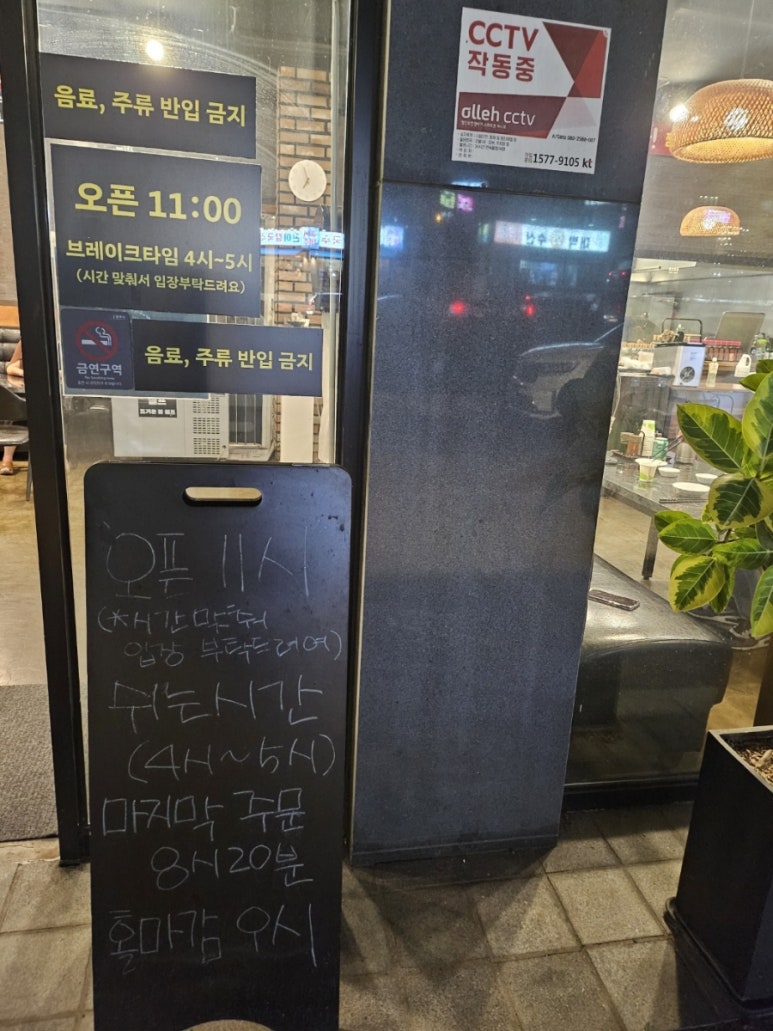 음료, 주류 반입 금지
오픈 11:00
브레이크타임 4시~5시
(시간 맞춰서 입장부탁드려요)
금연구역
음료, 주류 반입 금지
CCTV
작동중
olleh cctv
1577-9105 kt
오픈 11시
(*시간 맞춰
입장 부탁드려여)
쉬는시간
(4시~5시)
마지막 주문
8시20분
홀마감 9시